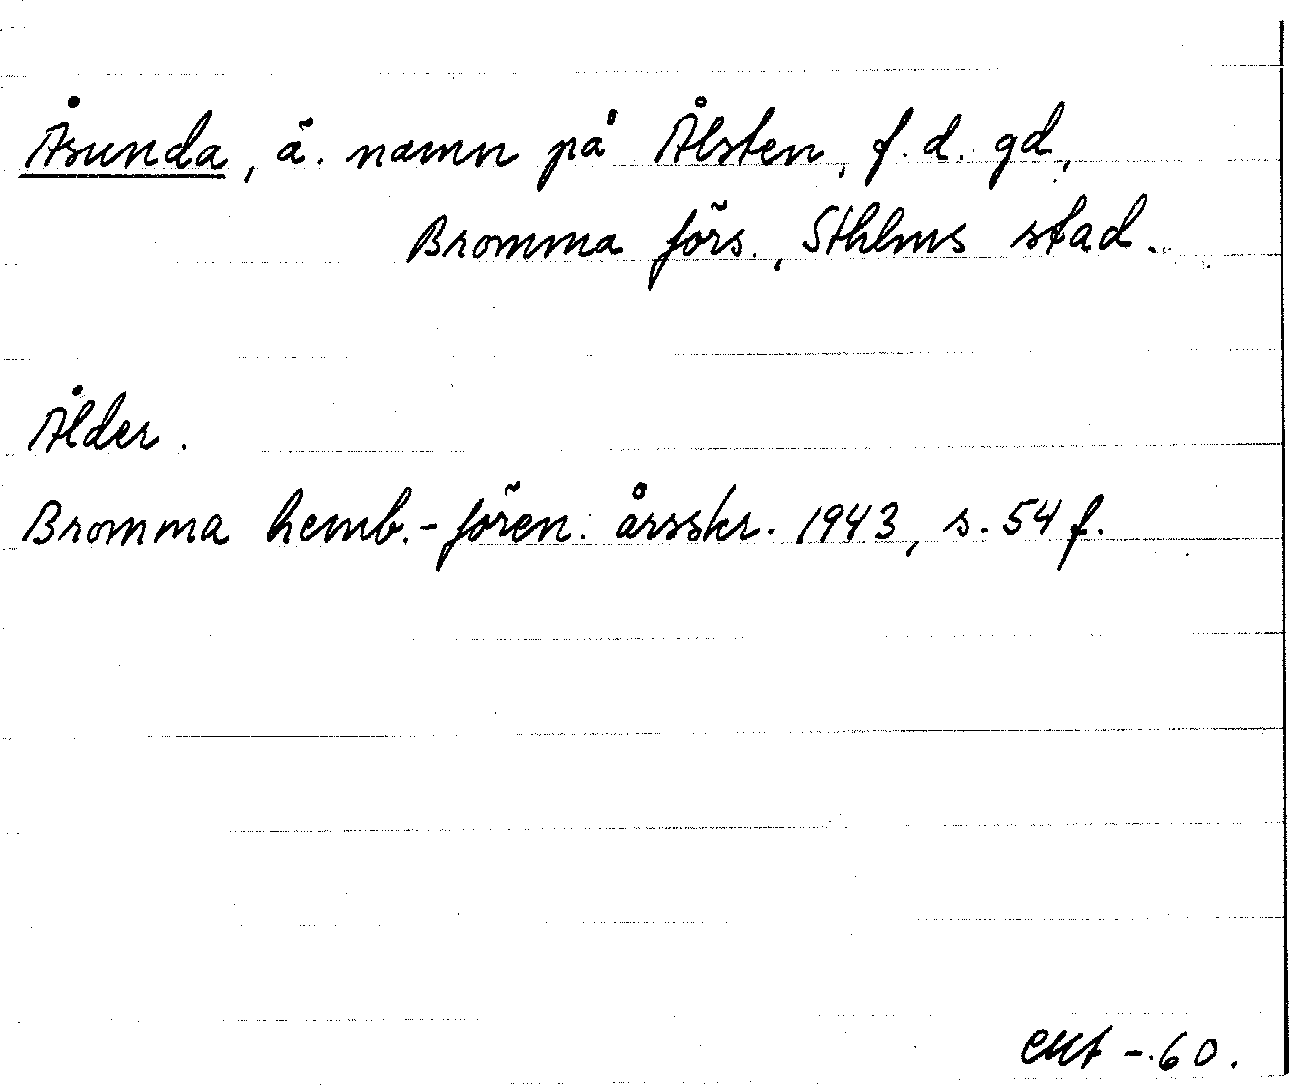 Åsunda, ä. namn på Ålsten, f.d. gd,
Bromma förs., Sthlms stad.
Ålder.
Bromma hemb.-fören. årsskr. 1943, s. 54 f.
-60.